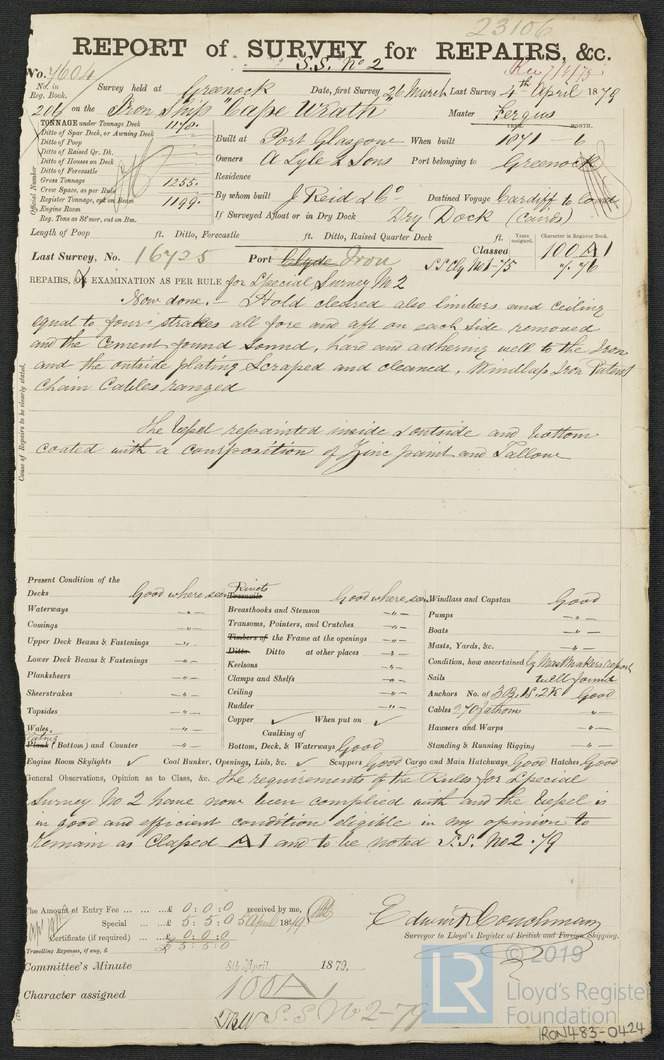 23106
REPORT of SURVEY for REPAIRS, &c.
S.S. No 2
No. 7604
No. in Reg. Book. Survey held at Greenock Date, first Survey 26 March Last Survey 4th April 1879
204 on the Iron Ship "Cape Wrath" Master Fergus
TONNAGE under Tonnage Deck 1170.
Ditto of Spar Deck, or Awning Deck
Ditto of Poop
Ditto of Raised Qr. Dk.
Ditto of Houses on Deck
Ditto of Forecastle
Gross Tonnage 1255.
Crew Space, as per Rule
Register Tonnage, cut on Beam 1199.
Engine Room
Reg. Tons as St'mer, cut on Bm.
Official Number
YEAR. MONTH.
Built at Port Glasgow When built 1871 - 6
Owners A Lyle & Sons Port belonging to Greenock
Residence
By whom built J Reid & Co Destined Voyage Cardiff to
If Surveyed Afloat or in Dry Dock Dry Dock (Cairds)
Length of Poop ft. Ditto, Forecastle ft. Ditto, Raised Quarter Deck ft.
Years assigned. Character in Register Book.
Last Survey, No. 16725 Port Clyde Iron Classed 100 A 1
SS Cly No 1-75 7.76
REPAIRS, OR EXAMINATION AS PER RULE for Special Survey No 2
Now done. - Hold cleared also limbers and Ceiling
equal to four strakes all fore and aft on each side removed
and the Cement found Sound, hard and adhering well to the Iron
and the outside plating Scraped and cleaned, Windlass Iron Patent
Chain Cables ranged
Cause of Repairs to be clearly stated.
The Vessel repainted inside & outside and bottom
coated with a composition of Zinc paint and Tallow
Present Condition of the
Decks Good where seen
Waterways - " -
Comings - " -
Upper Deck Beams & Fastenings - " -
Lower Deck Beams & Fastenings - " -
Planksheers - " -
Sheerstrakes - " -
Topsides - " -
Wales, - " -
Plating
Plank (Bottom) and Counter - " -
Rivets
Treenails Good where seen
Breasthooks and Stemson - " -
Transoms, Pointers, and Crutches - " -
Timbers of the Frame at the openings - " -
Ditto Ditto at other places - " -
Keelsons - " -
Clamps and Shelfs - " -
Ceiling - " -
Rudder - " -
Copper ✓ When put on ✓
Caulking of
Bottom, Deck, & Waterways Good
Windlass and Capstan Good
Pumps - " -
Boats - " -
Masts, Yards, &c. - " -
Condition, how ascertained by Mast Makers report
Sails well found
Anchors No. of 3 B. 1 S. 2 K Good
Cables 270 fathoms - " -
Hawsers and Warps - " -
Standing & Running Rigging - " -
Engine Room Skylights ✓ Coal Bunker, Openings, Lids, &c. ✓ Scuppers Good Cargo and Main Hatchways Good Hatches Good
General Observations, Opinion as to Class, &c. The requirements of the Rules for Special
Survey No 2 have now been complied with and the Vessel is
in good and efficient condition eligible in my opinion to
remain as Classed A 1 and to be noted S.S. No 2. 79
The Amount of Entry Fee ... £ 0 : 0 : 0 received by me,
Special ... £ 5 : 5 : 0 5 April 1879
Certificate (if required) ... £ 0 : 0 : 0
Travelling Expenses, if any, £ 5 : 5 : 0
Edwin R Couchman
Surveyor to Lloyd's Register of British and Foreign Shipping.
Committee's Minute 8th April 1879.
Character assigned 100 A 1
S.S. No 2 - 79
© 2019
LR
Lloyd's Register
Foundation
IRON483-0424